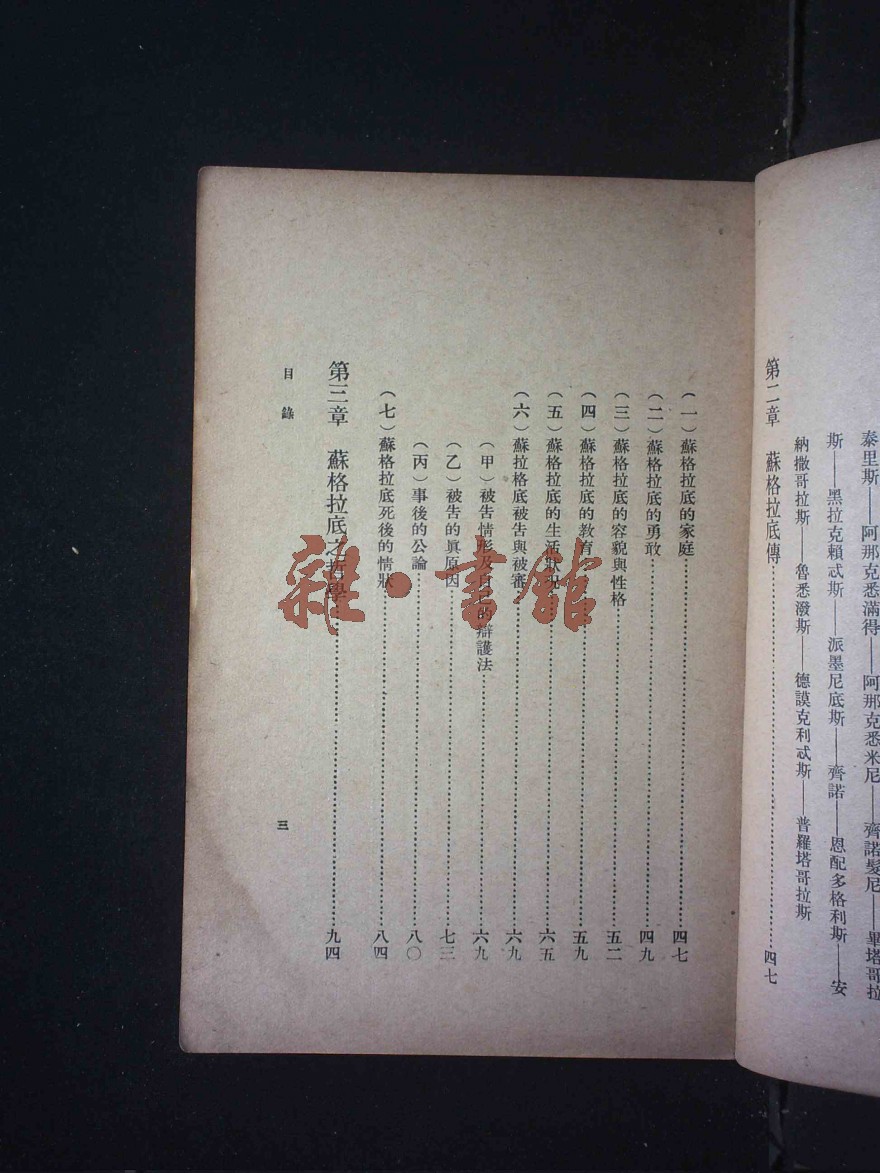 泰里斯——阿那克悉滿得——阿那克悉米尼——齊諾髮尼——畢塔哥拉
斯——黑拉克賴忒斯——派墨尼底斯——齊諾——恩配多格利斯——安
納撒哥拉斯——魯悉潑斯——德謨克利忒斯——普羅塔哥拉斯
第二章 蘇格拉底傳……四七
（一）蘇格拉底的家庭……四七
（二）蘇格拉底的勇敢……四九
（三）蘇格拉底的容貌與性格……五二
（四）蘇格拉底的教育……五九
（五）蘇格拉底的生活狀況……六五
（六）蘇拉格底被告與被審……六九
（甲）被告情形及自己的辯護法……六九
（乙）被告的眞原因……七三
（丙）事後的公論……八〇
（七）蘇格拉底死後的情狀……八四
第三章 蘇格拉底之哲學……九四
目錄
三
雜·書館